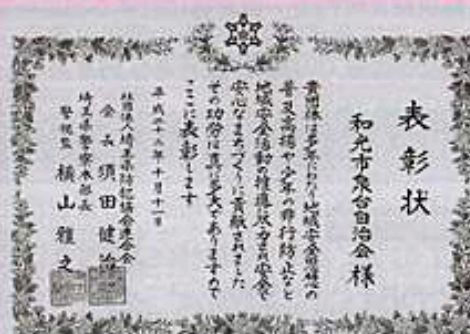 表彰状
和光市泉台自治会様
貴団体は多年にわたり地域安全思想の
普及高揚や少年の非行防止など
地域安全活動の推進に尽力され安全で
安心なまちづくりに貢献されました
その功労は真に多大でありますので
ここに表彰します
平成二十二年十月十一日
社団法人埼玉県防犯協会連合会
会長 須田健治
埼玉県警察本部長
警視監 横山雅之